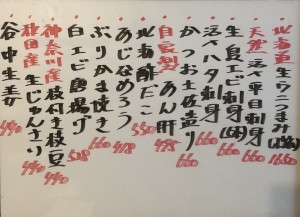 北海道 生ウニつまみ(塩水) 1650
天然 活〆平目刺身 660
生食エビ刺身
活〆ハタ刺身 660
かつお土佐造り 660
自家製 あん肝
北海酢だこ 550
あじなめろう 418
ぶりかま焼き
白エビ唐揚げ 528
神奈川産 枝付き枝豆 440
秋田産 生じゅんさい 440
谷中生姜 440